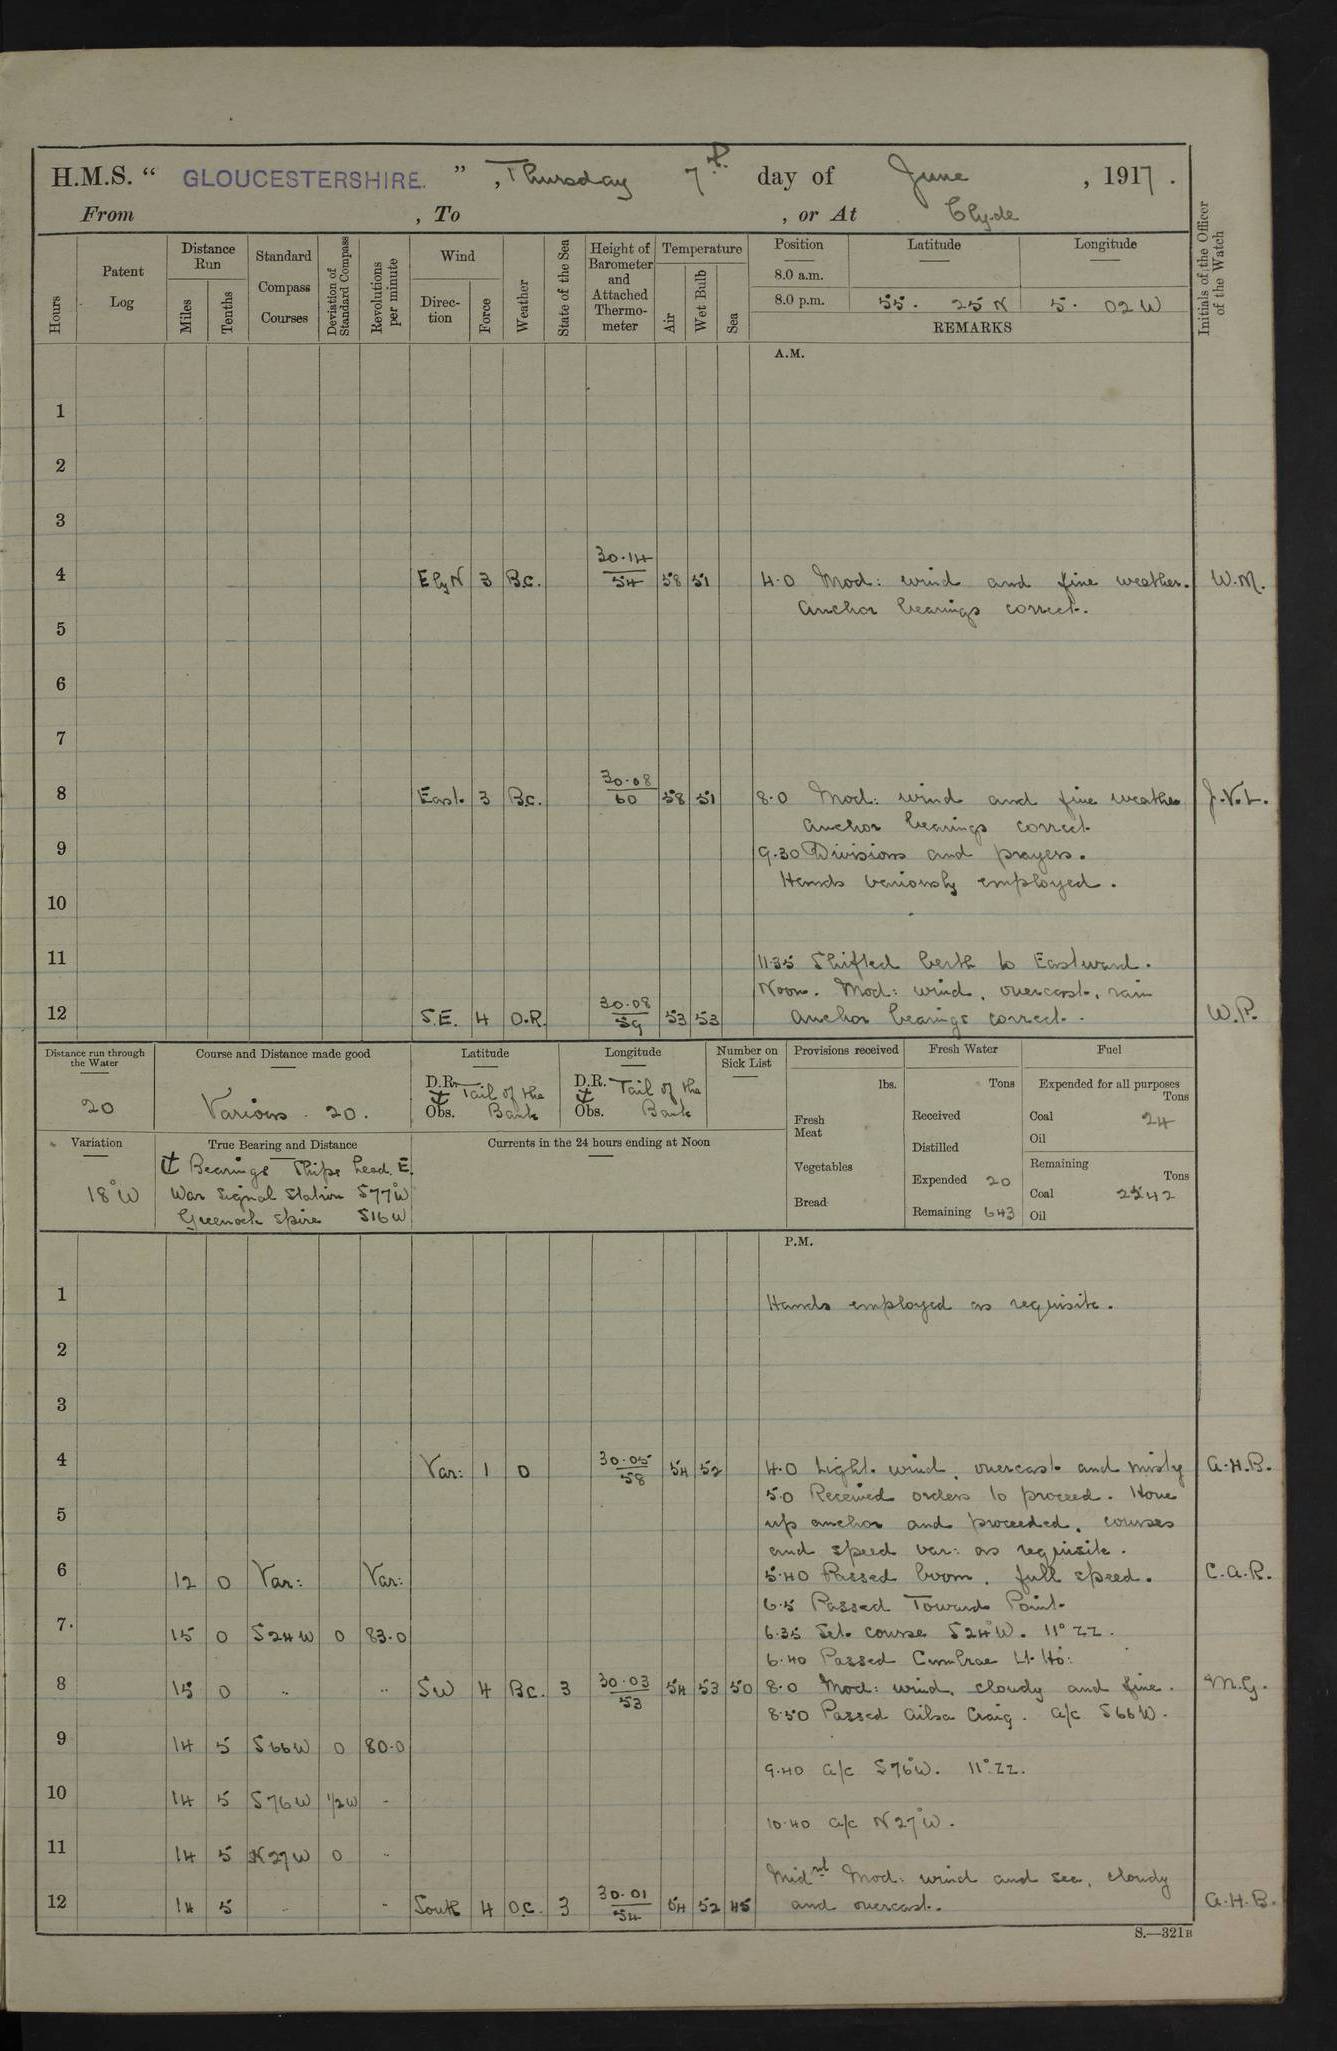 H.M.S. “ GLOUCESTERSHIRE. ” , Thursday 7th day of June , 1917 .
From , To , or At Clyde
Hours
Patent Log
Distance Run
Miles
Tenths
Standard Compass Courses
Deviation of Standard Compass
Revolutions per minute
Wind
Direc- tion
Force
Weather
State of the Sea
Height of Barometer and Attached Thermo- meter
Temperature
Air
Wet Bulb
Sea
Position
Latitude
Longitude
8.0 a.m.
8.0 p.m. 55. 25 N 5. 02 W
REMARKS
Initials of the Officer of the Watch
A.M.
1
2
3
4 E by N 3 B.C. 30.14 / 54 58 51 4.0 Mod: wind and fine weather. W.M.
Anchor bearings correct.
5
6
7
8 East. 3 B.C. 30.08 / 60 58 51 8.0 Mod: wind and fine weather J.V.L.
Anchor bearings correct
9 9.30 Divisions and prayers.
Hands variously employed.
10
11 11.35 Shifted berth to Eastward.
Noon. Mod: wind, overcast, rain
12 S.E. 4 O.R. 30.08 / 59 53 53 Anchor bearings correct. W.P.
Distance run through the Water
20
Course and Distance made good
Various . 20.
Latitude
D.R. Tail of the
Obs. Bank
Longitude
D.R. Tail of the
Obs. Bank
Number on Sick List
Provisions received
lbs.
Fresh Meat
Vegetables
Bread
Fresh Water
Tons
Received
Distilled
Expended 20
Remaining 643
Fuel
Expended for all purposes
Tons
Coal 24
Oil
Remaining
Tons
Coal 2542
Oil
Variation
18° W
True Bearing and Distance
Bearings Ships head E.
War Signal Station S77°W
Greenock Spire S16W
Currents in the 24 hours ending at Noon
P.M.
1 Hands employed as requisite.
2
3
4 Var: 1 O 30.05 / 58 54 52 4.0 Light wind, overcast and misty A.H.B.
5.0 Received orders to proceed. Hove
5 up anchor and proceeded, courses
and speed var: as requisite.
6 12 0 Var: Var: 5.40 Passed boom, full speed. C.A.R.
6.5 Passed Toward Point
7. 15 0 S24W 0 83.0 6.35 Set course S24°W. 11° ZZ.
6.40 Passed Cumbrae Lt. Ho:
8 15 0 .. .. SW 4 B.C. 3 30.03 / 53 54 53 50 8.0 Mod: wind, cloudy and fine. M.G.
8.50 Passed Ailsa Craig. A/c S66W.
9 14 5 S66W 0 80.0
9.40 A/c S76°W. 11° ZZ.
10 14 5 S76W 1/2W ..
10.40 A/c N27°W.
11 14 5 N27W 0 ..
Midnt Mod: wind and sea, cloudy
12 14 5 .. .. South 4 O.C. 3 30.01 / 54 54 52 45 and overcast. A.H.B.
S.—321B